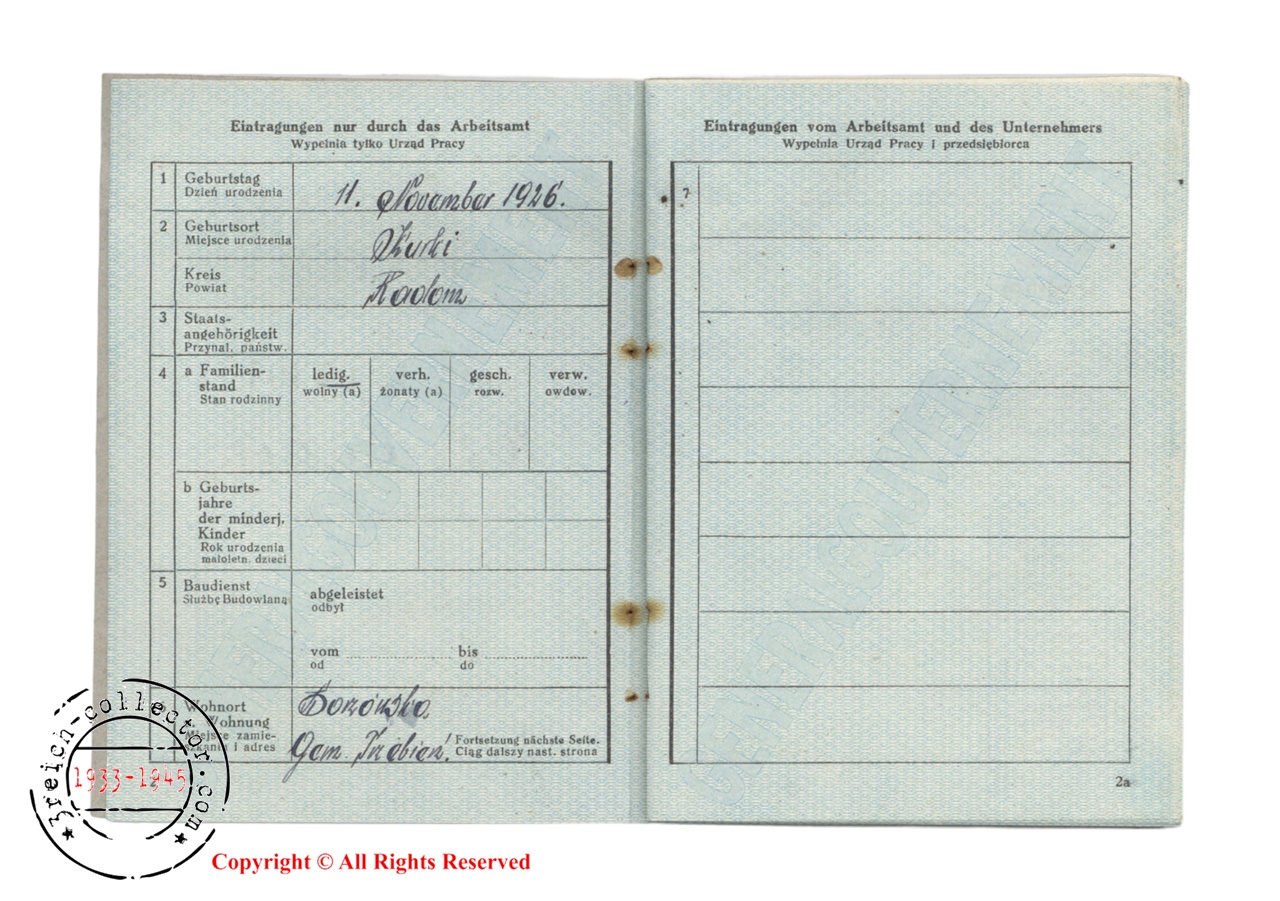 Eintragungen nur durch das Arbeitsamt
Wypełnia tylko Urząd Pracy
1 Geburtstag 11. November 1926.
Dzień urodzenia
2 Geburtsort
Miejsce urodzenia
Kreis Radom
Powiat
3 Staats-
angehörigkeit
Przynal. państw.
4 a Familien- ledig. verh. gesch. verw.
stand wolny (a) żonaty (a) rozw. owdow.
Stan rodzinny
b Geburts-
jahre
der minderj.
Kinder
Rok urodzenia
małoletn. dzieci
5 Baudienst abgeleistet
Służbę Budowlaną odbył
vom bis
od do
Wohnort
Wohnung
Miejsce zamie-
szkania i adres
Gem.
Fortsetzung nächste Seite.
Ciąg dalszy nast. strona
Eintragungen vom Arbeitsamt und des Unternehmers
Wypełnia Urząd Pracy i przedsiębiorca
7
2a
GENERALGOUVERNEMENT
GENERALGOUVERNEMENT
3reich-collector.com
1933-1945
Copyright © All Rights Reserved